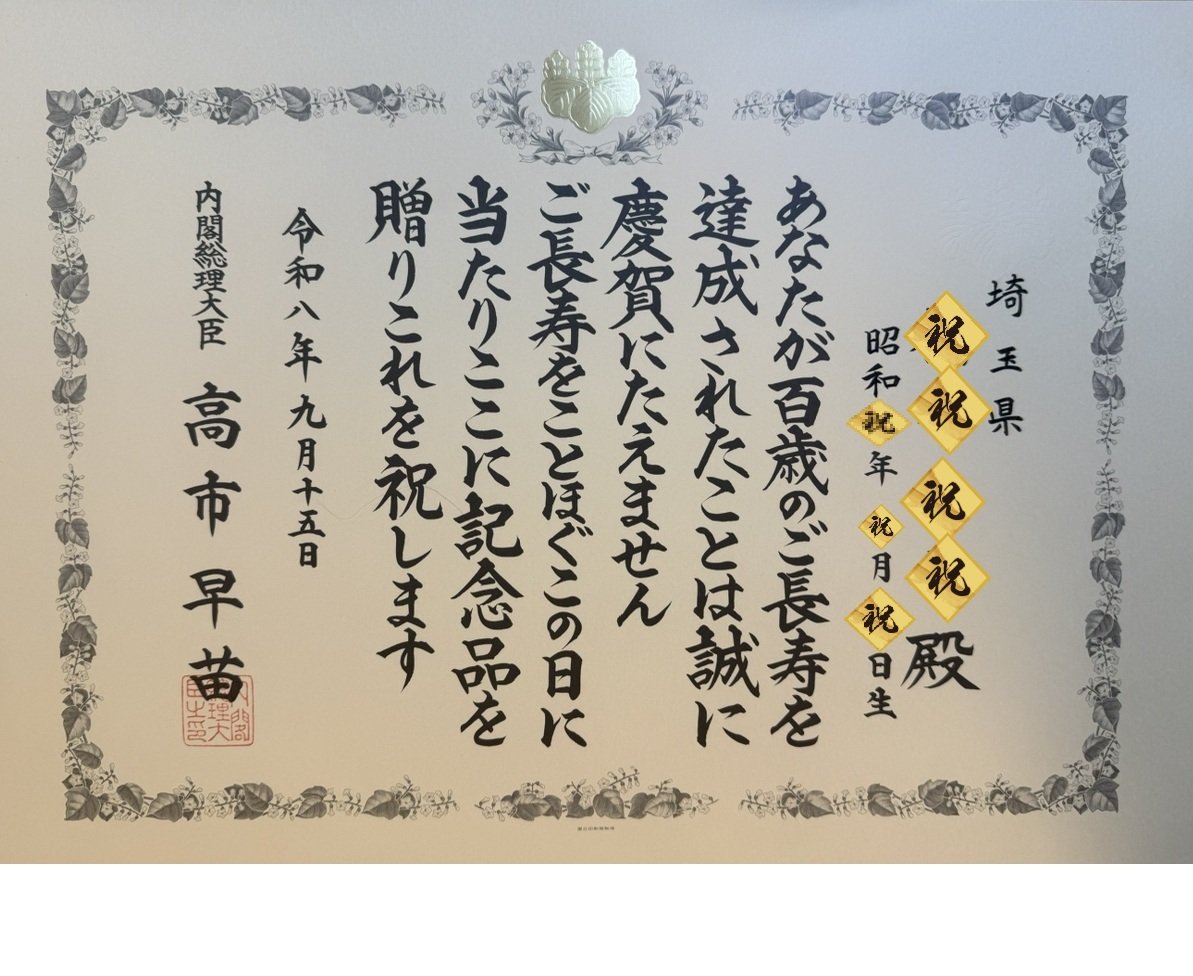 埼玉県
祝祝祝祝殿
昭和祝年祝月祝日生
あなたが百歳のご長寿を
達成されたことは誠に
慶賀にたえません
ご長寿をことほぐこの日に
当たりここに記念品を
贈りこれを祝します
令和八年九月十五日
内閣総理大臣 高市早苗